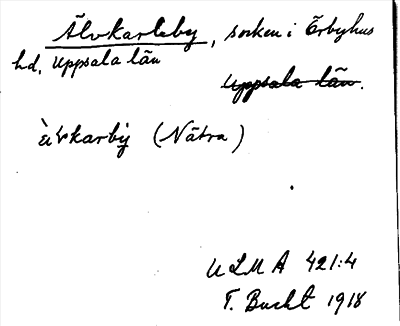 Älvkarleby, socken i Örbyhus
hd, Uppsala län
Uppsala län.
(Nätra)
ULMA 421:4
T. Bucht 1918